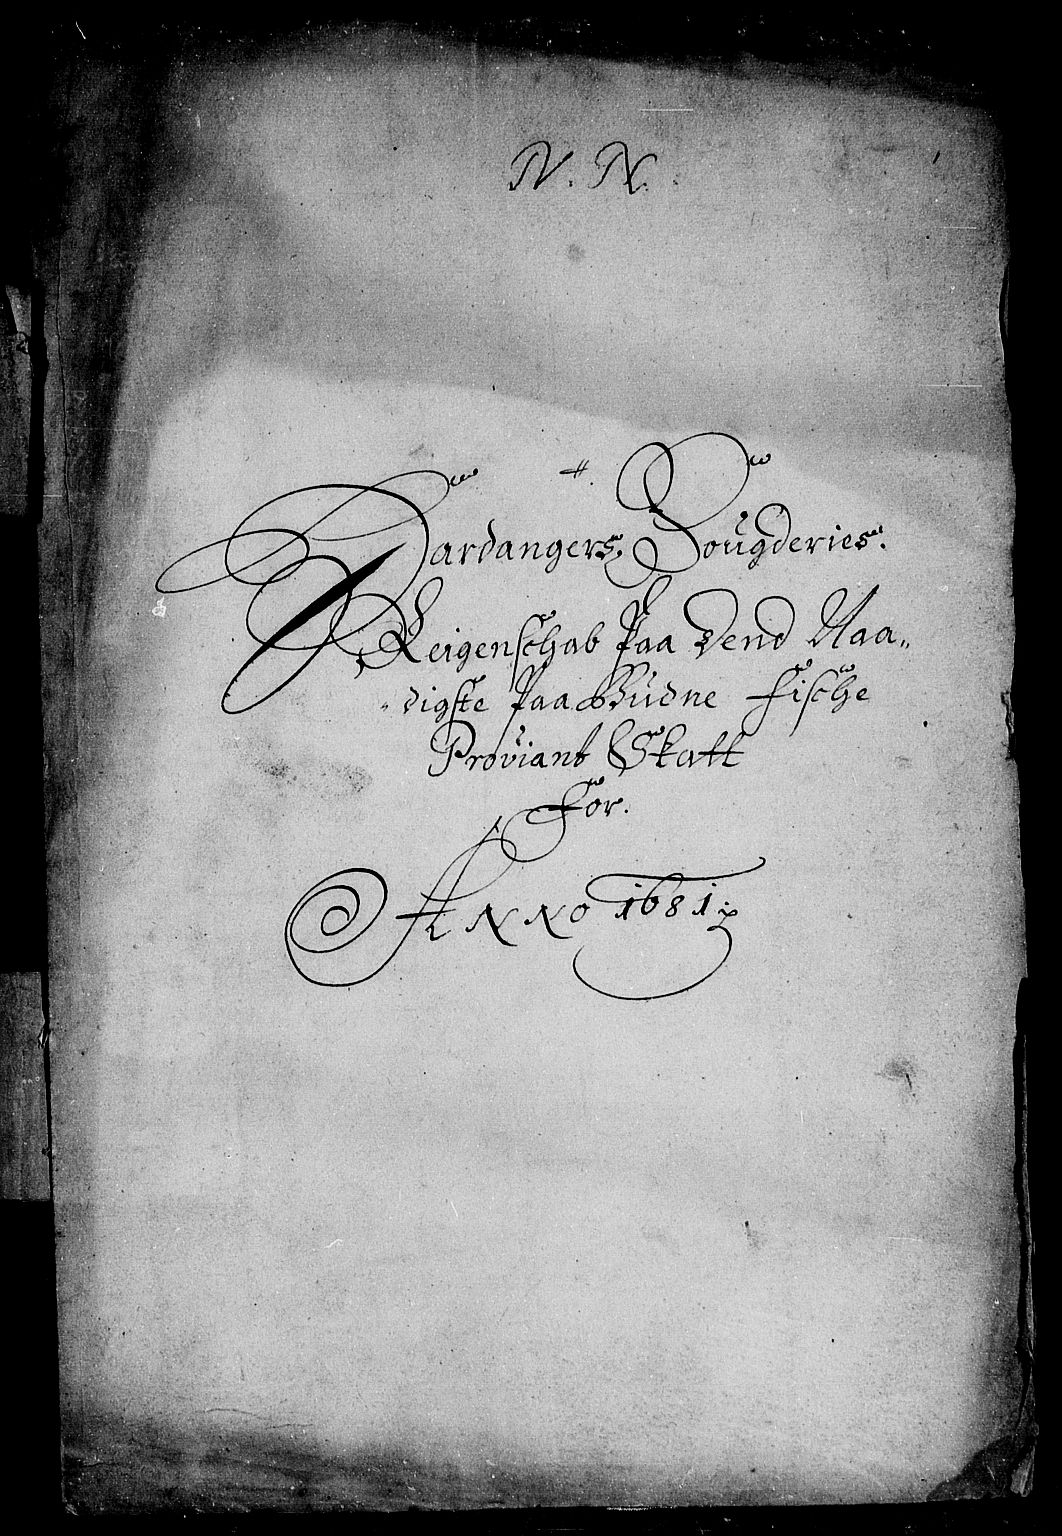 N. N.
Hardangers Fougderies.
Reigenschab paa dend Naa„
digste paa Budne Fische
Proviant Skatt
For.
Anno 1681